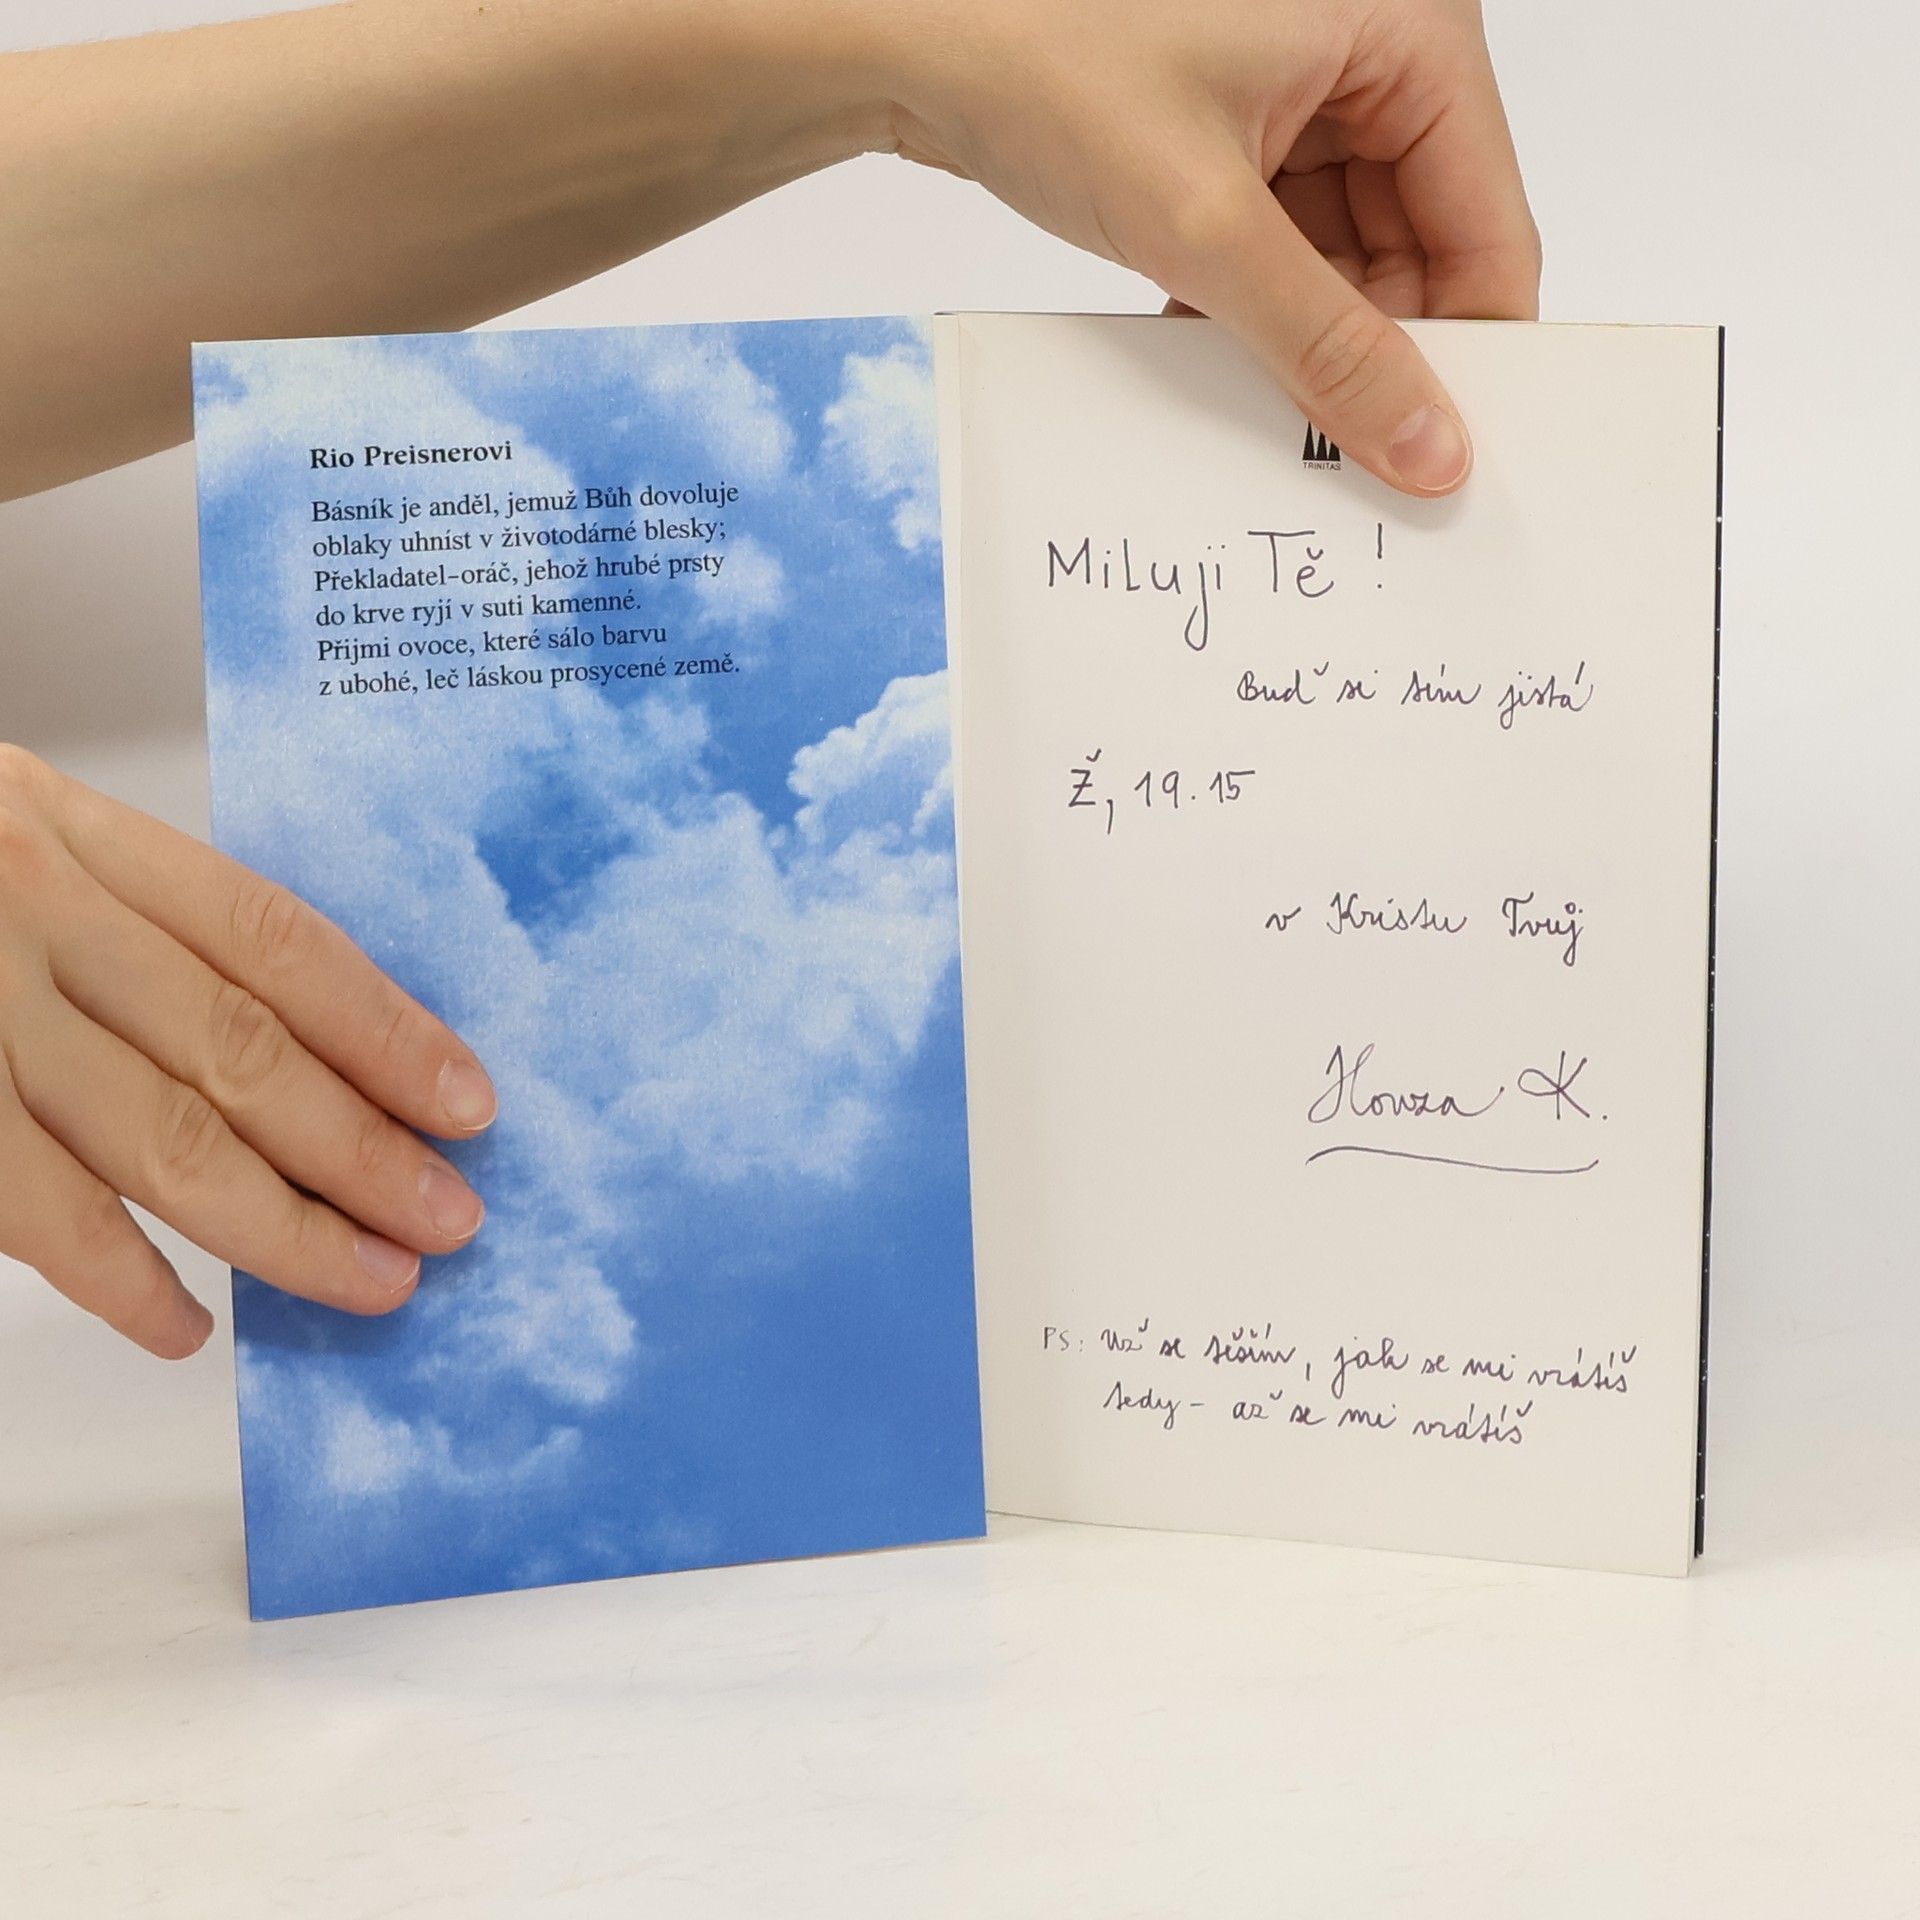 Rio Preisnerovi
Básník je anděl, jemuž Bůh dovoluje
oblaky uhníst v životodárné blesky;
Překladatel–oráč, jehož hrubé prsty
do krve ryjí v suti kamenné.
Přijmi ovoce, které sálo barvu
z ubohé, leč láskou prosycené země.
TRINITAS
Miluji Tě !
Buď si tím jistá
Ž, 19.15
v Kristu Tvůj
Honza K.
PS: Už se těším, jak se mi vrátíš
tedy – až se mi vrátíš